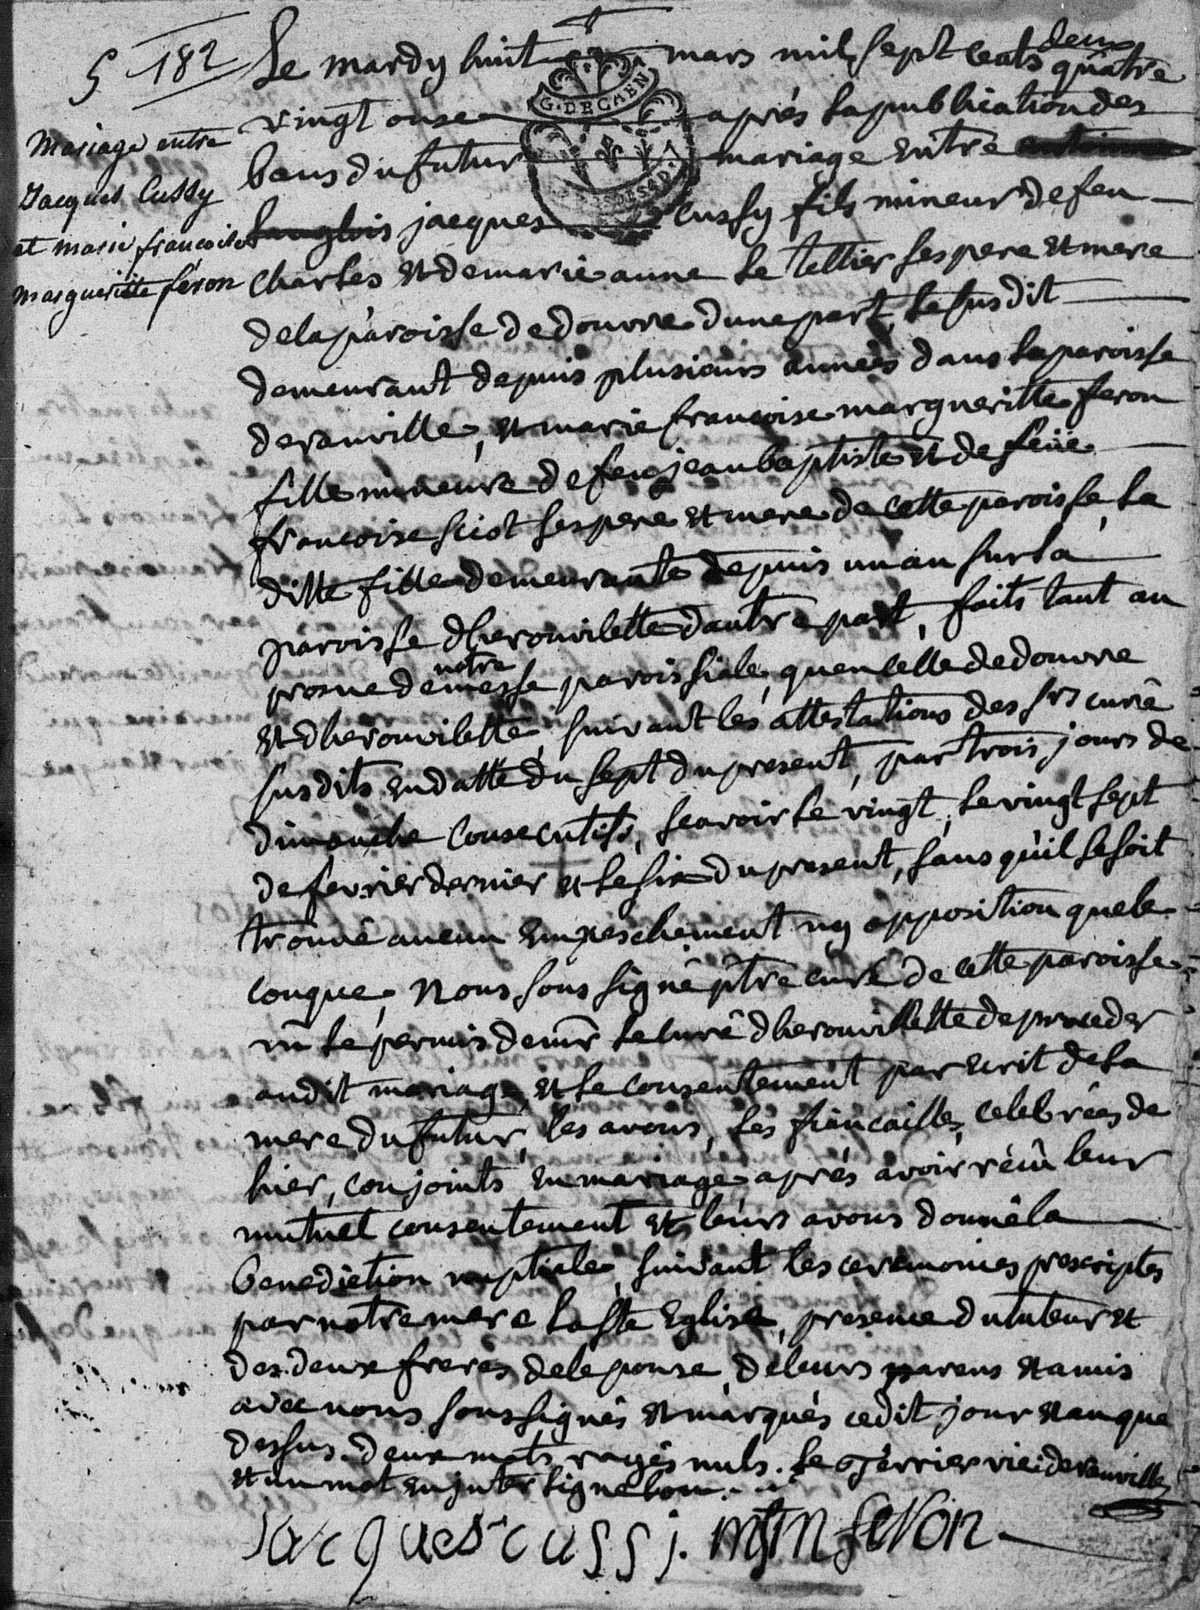 5 182
Mariage entre
Jacques Cussy
et marie francoise
margueritte féron
Le mardy huit mars mil sept cents quatre
deux
vingt onze après la publication des
G. DE CAEN
bans du futur mariage entre
langlois jacques Cussy fils mineur de feu
Charles et de marie anne le tellier ses pere et mere
de la paroisse de douvre dune part, le susdit
demeurant depuis plusieurs années dans la paroisse
de ranville, et marie francoise margueritte feron
fille mineure de feu jean baptiste et de feüe
francoise sciot ses pere et mere de cette paroisse, la
ditte fille demeurante depuis un an sur la
paroisse dherouvilette dautre part, faits tant au
prosne de notre messe paroissiale, quen celle de douvre
et dherouvilette, suivant les attestations des srs curé
susdits en datte du sept du present, par trois jours de
dimanche consecutifs, scavoir le vingt, le vingt sept
de fevrier dernier et le six du present, sans qu'il se soit
trouvé aucun empeschement ny opposition quele
conque, Nous sous signé ptre curé de cette paroisse
vû le permis de mr le curé dherouvillette de proceder
au dit mariage, et le consentement par ecrit de la
mere du futur, les avons, les fiancailles celebrées de
hier, conjoints en mariage après avoir réçû leur
mutuel consentement et leurs avons donné la
benediction nuptiale, suivant les ceremonies prescriptes
par notre mere la ste Eglise, presence du tuteur et
des deux freres de lepouse, de leurs parens et amis
avec nous soussignés et marqués cedit jour et an que
dessus. deux mots rayés nuls. le terrier vic: de ranville
et un mot en inter ligne bon.
jacques cussj. mfm feron